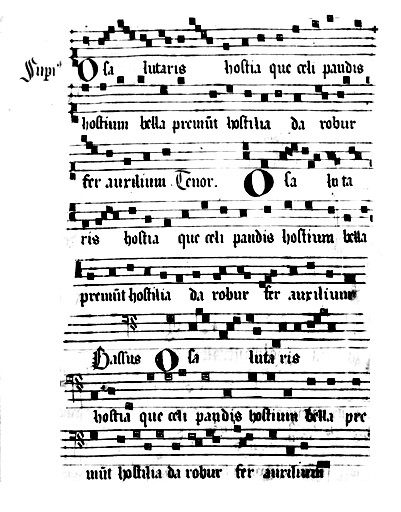 Supi⁹ O sa lutaris hostia que celi pandis
hostium bella premūt hostilia da robur
fer auxilium Tenor. O sa luta
ris hostia que celi pandis hostium bella
premūt hostilia da robur fer auxilium
Bassus O sa luta ris
hostia que celi pandis hostium bella pre
mūt hostilia da robur fer auxilium